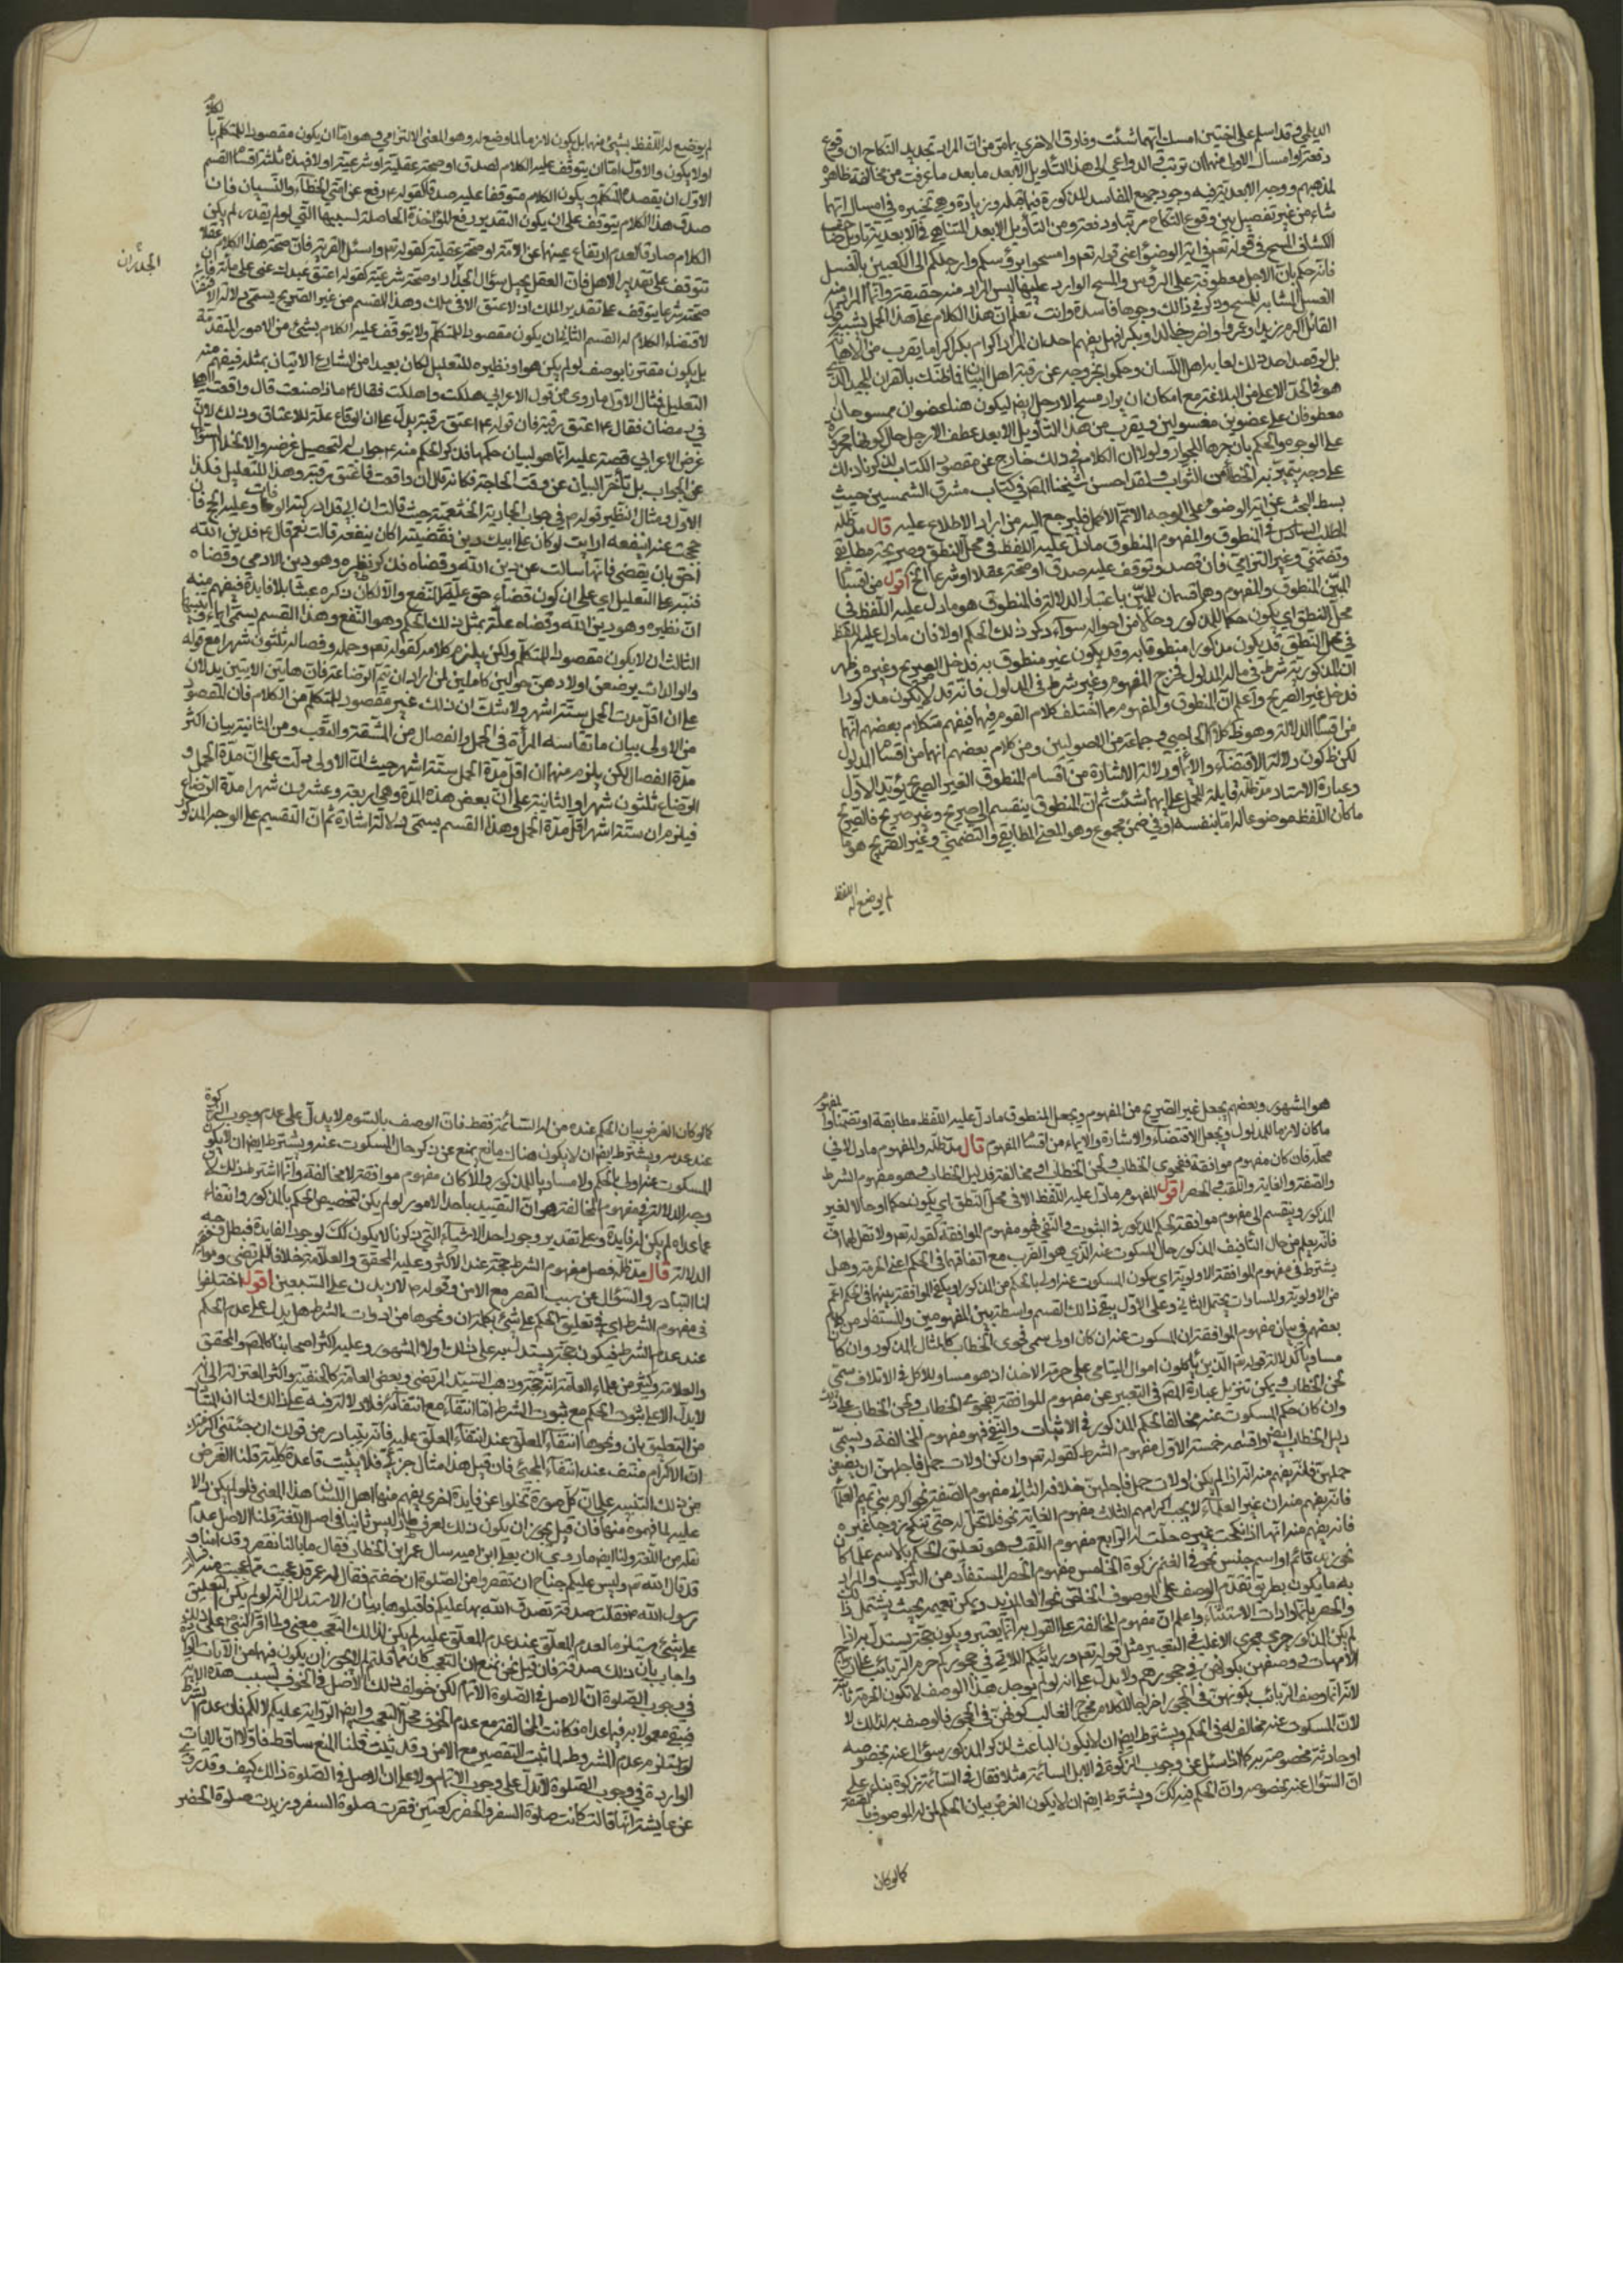 الديلمي وقد اسلم على اختين امسك ايتهما شئت وفارق الاخرى بامر من ان المراد تجديد النكاح ان وقوع
دفعة او امسال الاولى منهما ان ترتب في الدواعي الى هذا التأويل الابعد ما بعد ما عرفت من مخالفة ظاهره
لمذهبهم ووجه الابعدية فيه وجود جميع المفاسد المذكورة فيما قبله وزيادة وهو تخييره في امساك ايتهما
شاء من غير تفصيل بين وقوع النكاح مرتبا ودفعة ومن التأويل الابعد المتناهي في الابعدية تأويل صاحب
الكشاف المسح في قوله تعم في اية الوضوء اعني قوله تعم وامسحوا برؤسكم وارجلكم الى الكعبين بالغسل
فانه حكم بان الارجل معطوفة على الرؤس والمسح الوارد عليها ليس المراد منه حقيقته وانما المراد منه
الغسل المشابه للمسح وذكر في ذلك وجوها فاسدة وانت تعلم ان هذا الكلام على هذا الحمل يشبه قول
القائل اكرم زيدا وعمروا واضرب خالدا وبكرا فهل يفهم احد ان المراد اكرام بكر اكراما يقرب من الاهانة
بل لو قصد احد ذلك لعابه اهل اللسان وحكموا بخروجه عن ربقة اهل البيان فما ظنك بالقران المجيد الذي
هو في المحل الاعلى من البلاغة مع امكان ان يراد مسح الارجل ايضا ليكون هنا عضوان ممسوحان
معطوفان على عضوين مغسولين ويقرب من هذا التأويل الابعد عطف الارجل حال كونها مجرورة
على الوجوه والحكم بان جرها للجوار ولولا ان الكلام في ذلك خارج عن مقصود الكتاب لذكرنا ذلك
على وجه يتميز به الخطأ من الثواب ولقد احسن شيخنا المص في كتاب مشرق الشمسين حيث
بسط البحث عن اية الوضوء على الوجه الاتم الاكمل فليرجع اليه من اراد الاطلاع عليه قال مد ظله
المطلب السادس في المنطوق والمفهوم المنطوق ما دل عليه اللفظ في محل النطق وصريحه مطابقي
وتضمني وغيره التزامي فان قصد وتوقف عليه صدق او صحته عقلا او شرعا الخ اقول من اقسام
المبين المنطوق والمفهوم وهما قسمان للمبين باعتبار الدلالة فالمنطوق هو ما دل عليه اللفظ في
محل النطق اي يكون حكما للمذكور وحالا من احواله سواء ذكر ذلك الحكم اولا فان ما دل عليه اللفظ
في محل النطق قد يكون مذكورا منطوقا به وقد يكون غير منطوق به فدخل الصريح وغيره وظهر
ان المذكورية شرط في ماله المدلول فخرج المفهوم وغير شرط في المدلول فانه قد لا يكون مذكورا
فدخل غير الصريح واعلم ان المنطوق والمفهوم مما اختلف كلام القوم فيهما فيفهم من كلام بعضهم انهما
من اقسام الدلالة وهو ظ كلام الحاجبي وجماعة من الاصوليين ومن كلام بعضهم انهما من اقسام المدلول
لكن ظ كون دلالة الاقتضاء والايماء ودلالة الاشارة من اقسام المنطوق الغير الصريح يؤيد الاول
وعبارة الاستاد مد ظله قابلة للحمل على ايهما شئت ثم ان المنطوق ينقسم الى صريح وغير صريح فالصريح
ما كان اللفظ موضوعا له اما بنفسه او في ضمن مجموع وهو المعنى المطابقي والتضمني وغير الصريح هو ما
لم يوضع له اللفظ
لم يوضع له اللفظ بشيء منهما بل يكون لازما لما وضع له وهو المعنى الالتزامي وهو اما ان يكون مقصودا للمتكلم بالكلام
اولا يكون والاول اما ان يتوقف عليه الكلام لصدق او صحة عقلية او شرعية اولا فهذه ثلثة اقسام القسم
الاول ان يقصده المتكلم ويكون الكلام متوقفا عليه صدقا كقوله ع رفع عن امتي الخطاء والنسيان فان
صدق هذا الكلام يتوقف على ان يكون التقدير رفع المؤاخذة الحاصلة بسببها التي لو لم يقدر لم يكن
الكلام صادقا لعدم ارتفاع عينهما عن الامة او صحة عقلية كقوله تع واسئل القرية فان صحة هذا الكلام عقلا
تتوقف على تقدير الاهل فان العقل يحيل سؤال الجدار او صحة شرعية كقوله اعتق عبدك عني على مائة فان
صحته شرعا يتوقف على تقدير الملك اذ لا عتق الا في ملك وهذا القسم من غير الصريح يسمى دلالة الاقتضاء
لاقتضاء الكلام له القسم الثاني ان يكون مقصودا للمتكلم ولا يتوقف عليه الكلام بشيء من الامور المتقدمة
بل يكون مقترنا بوصف لو لم يكن هو او نظيره للتعليل لكان بعيدا من الشارع الاتيان بمثله فيفهم منه
التعليل فمثال الاول ما روي من قول الاعرابي هلكت واهلكت فقال ع ماذا صنعت قال واقعت اهلي
في رمضان فقال ع اعتق رقبة فان قوله ع اعتق رقبة يدل على ان الوقاع علة للاعتاق وذلك لان
غرض الاعرابي قصة عليه انما هو لبيان حكمها فذكر الحكم منه ع جواب له لتحصيل غرضه والا لاخلا السؤال
عن الجواب بل تأخر البيان عن وقت الحاجة فكانه قال ان واقعت فاعتق رقبة وهذا للتعليل فكذا
الاول ومثال النظير قوله م في جواب الجارية الخثعمية حيث قالت ان ابي قد ادركته الوفات وعليه الحج فان
حججت عنه اينفعه ارايت لو كان على ابيك دين فقضيته اكان ينفعه قالت نعم قال ع فدين الله
احق بان يقضى فانها سالت عن دين الله وقضاه فذكر نظيره وهو دين الادمي وقضاه
فنبه على التعليل اي على ان كون قضاء حق علة للنفع والا لكان ذكره عبثا بلا فايدة فيفهم منه
ان نظيره وهو دين الله وقضاه علة بمثل ذلك الحكم وهو النفع وهذا القسم يسمى ايماء وتنبيها
الثالث ان لا يكون مقصودا للمتكلم ولكن يلزم كلامه كقوله تعم وحمله وفصاله ثلثون شهرا مع قوله
والوالدات يرضعن اولادهن حولين كاملين لمن اراد ان يتم الرضاعة فان هاتين الايتين يدلان
على ان اقل مدت الحمل ستة اشهر ولا شك ان ذلك غير مقصود للمتكلم من الكلام فان المقصود
من الاولى بيان ما تقاسه المرأة في الحمل والفصال من المشقة والتعب ومن الثانية بيان اكثر
مدة الفصال لكن يلزم منهما ان اقل مدة الحمل ستة اشهر حيث ان الاولى دلت على ان مدة الحمل و
الرضاع ثلثون شهرا والثانية على ان بعض هذه المدة وهي اربعة وعشرون شهرا مدة الرضاع
فيلزم ان ستة اشهر اقل مدة الحمل وهذا القسم يسمى دلالة اشارة ثم ان التقسيم على الوجه المذكور
هو المشهور وبعضهم يجعل غير الصريح من المفهوم ويجعل المنطوق ما دل عليه اللفظ مطابقة او تضمنا والمفهوم
ما كان لازما للمدلول ويجعل الاقتضاء والاشارة والايماء من اقسام المفهوم قال مد ظله والمفهوم ما دل لا في
محله فان كان مفهوم موافقة ففحوى الخطاب ولحن الخطاب او مخالفة فدليل الخطاب وهو مفهوم الشرط
والصفة والغاية واللقب والحصر اقول المفهوم ما دل عليه اللفظ لا في محل النطق اي يكون حكما او حالا لغير
المذكور وينقسم الى مفهوم موافقة لحكم المذكور في الثبوت والنفي فهو مفهوم الموافقة كقوله تعم ولا تقل لهما اف
فانه يعلم من حال التأفيف المذكور حال المسكوت عنه الذي هو الضرب مع اتفاقهما في الحكم اعني الحرمة وهل
يشترط في مفهوم الموافقة الاولوية اي كون المسكوت عنه اولى بالحكم من المذكور او يكفي الموافقة بينهما في الحكم اعم
من الاولوية والمساوات يحتمل الثاني وعلى الاول يبقى ذلك القسم واسطة بين المفهومين والمستفاد من كلام
بعضهم في بيان مفهوم الموافقة ان المسكوت عنه ان كان اولى سمى فحوى الخطاب كالمثال المذكور وان كان
مساويا كدلالة قوله تع الذين يأكلون اموال اليتامى على حرمة الاحراق اذ هو مساو للاكل في الاتلاف سمى
لحن الخطاب ويمكن تنزيل عبارة المص في التعبير عن مفهوم الموافقة بفحوى الخطاب ولحن الخطاب على ذلك
وان كان حكم المسكوت عنه مخالفا لحكم المذكور في الاثبات والنفي فهو مفهوم المخالفة ويسمى
دليل الخطاب ايضا واقسامه خمسة الاول مفهوم الشرط كقوله تعم وان كن اولات حمل فاجلهن ان يضعن
حملهن فانه يفهم منه انه اذا لم يكن اولات حمل فاجلهن خلافه الثاني مفهوم الصفة نحو اكرم بني تميم العلماء
فانه يفهم منه ان غير العلماء لا يجب اكرامهم الثالث مفهوم الغاية نحو فلا تحل له حتى تنكح زوجا غيره
فانه يفهم منه انها اذا نكحت غيره حلت له الرابع مفهوم اللقب وهو تعليق الحكم بالاسم علما كان
نحو زيد قائم او اسم جنس نحو في الغنم زكوة الخامس مفهوم الحصر المستفاد من التركيب والمراد
به ما يكون بطريق تقدم الوصف على الموصوف الخاص نحو العالم زيد ويمكن تعميمه بحيث يشتمل
والحصر بانما وادات الاستثناء واعلم ان مفهوم المخالفة على القول به انما يعتبر ويكون حجة يستدل به اذا
لم يكن المذكور جرى مجرى الاغلب في التعبير مثل قوله تعم وربائبكم اللاتي في حجوركم حرم الربائب على ازواج
الامهات ووصفهن بكونهن في حجورهم ولا يدل على انه لو لم يوجد هذا الوصف لا تكون الحرمة ثابتة
لانه انما وصف الربائب بكونهن في الحجور اخراجا للكلام مخرج الغالب كونهن في الحجور فالوصف به لذلك لا
لان المسكوت عنه مخالف له في الحكم ويشترط ايضا ان لا يكون الباعث لذكر المذكور سؤال عنه بخصوصه
او حادثة مخصوصة به كما اذا سئل عن وجوب الزكوة في الابل السائمة مثلا فقال في السائمة زكوة بناء على
ان السؤال عنه بخصوصه وان الحكم فيه كك ويشترط ايضا ان لا يكون الغرض بيان الحكم لمن له الموصوف بالصفة
كما لو كان
كما لو كان الغرض بيان الحكم عنده من له السائمة فقط فان الوصف بالسوم لا يدل على عدم وجوب الزكوة
عند عدمه ويشترط ايضا ان لا يكون هناك مانع يمنع عن ذكر حال المسكوت عنه ويشترط ايضا ان لا يكون
المسكوت عنه اولى بالحكم ولا مساويا للمذكور والا لكان مفهوم موافقة لا مخالفة وانما اشترط ذلك لان
وجه الدلالة في مفهوم المخالفة هو ان التقييد باحد الامور لو لم يكن لتخصيص الحكم بالمذكور وانتفاءه
عما عداه لم يكن له فايدة وعلى تقدير وجود احد الاشياء التي ذكرنا لا يكون كك لوجود الفايدة فبطل وجه
الدلالة قال مد ظله فصل مفهوم الشرط حجة عند الاكثر وعليه المحقق والعلامة خلافا للمرتضى وموافقيه
لنا التبادر والسؤال عن سبب القصر مع الامن وقوله م لازيدن على السبعين اقول اختلفوا
في مفهوم الشرط اي في تعليق الحكم على شيء بكلمة ان ونحوها من ادوات الشرط هل يدل على عدم الحكم
عند عدم الشرط فيكون حجة يستدل به على ذلك اولا المشهور وعليه اكثر اصحابنا كالمص والمحقق
والعلامة وكثير من علماء العامة انه حجة وذهب السيد المرتضى وبعض العامة كالحنفية واكثر المعتزلة الى انه
لا يدل الا على ثبوت الحكم مع ثبوت الشرط اما انتفاءه مع انتفائه فلا دلالة فيه على ذلك لنا ان المتبادر
من التعليق بان ونحوها انتفاء المعلق عند انتفاء المعلق عليه فانه يتبادر من قولك ان جئتني اكرمتك
ان الاكرام منتف عند انتفاء المجيء فان قيل هذا مثال جزئي فلا يثبت قاعدة كلية قلنا الغرض
من ذلك التنبيه على ان كل صورة تخلوا عن فايدة اخرى يفهم منها اهل اللسان هذا المعنى فلو لم يكن دالا
عليه لما فهموه منها فان قيل يجوز ان يكون ذلك لعرف طار ليس ثابتا في اصل اللغة قلنا الاصل عدم
نقله من اللغة ولنا ايضا ما روي ان يعلى ابن امية سال عمر ابن الخطاب فقال ما بالنا نقصر وقد امنا و
قد قال الله تع وليس عليكم جناح ان تقصروا من الصلوة ان خفتم فقال له عمر قد عجبت مما عجبت منه فسالت
رسول الله ص فقلت صدقة تصدق الله بها عليكم فاقبلوها بيان الاستدلال انه لو لم يكن التعليق
على شيء مستلزما لعدم المعلق عند عدم المعلق عليه لم يكن لذلك التعجب معنى ولما اقر النبي ص على ذلك
واجاب بان ذلك صدقة فان قيل نحن نمنع ان التعجب كان مما قلتم لم لا يجوز ان يكون فهما من الآيات الواردة
في وجوب الصلوة ان الاصل في الصلوة الاتمام لكن خولف ذلك الاصل في الخوف بسبب هذه الآية
فبقي معمولا به فيما عداه فكانت المخالفة مع عدم الخوف محل التعجب وايضا الرواية عليكم لا لكم فان عدم الشرط
لو استلزم عدم المشروط لما ثبت التقصير مع الامن وقد ثبت قلنا المنع ساقط فاولا ان الايات
الواردة في وجوب الصلوة لا تدل على وجوب الاتمام ولا على ان الاصل في الصلوة ذلك كيف وقد روي
عن عايشة انها قالت كانت صلوة السفر والحضر ركعتين فقرت صلوة السفر وزيدت صلوة الحضر